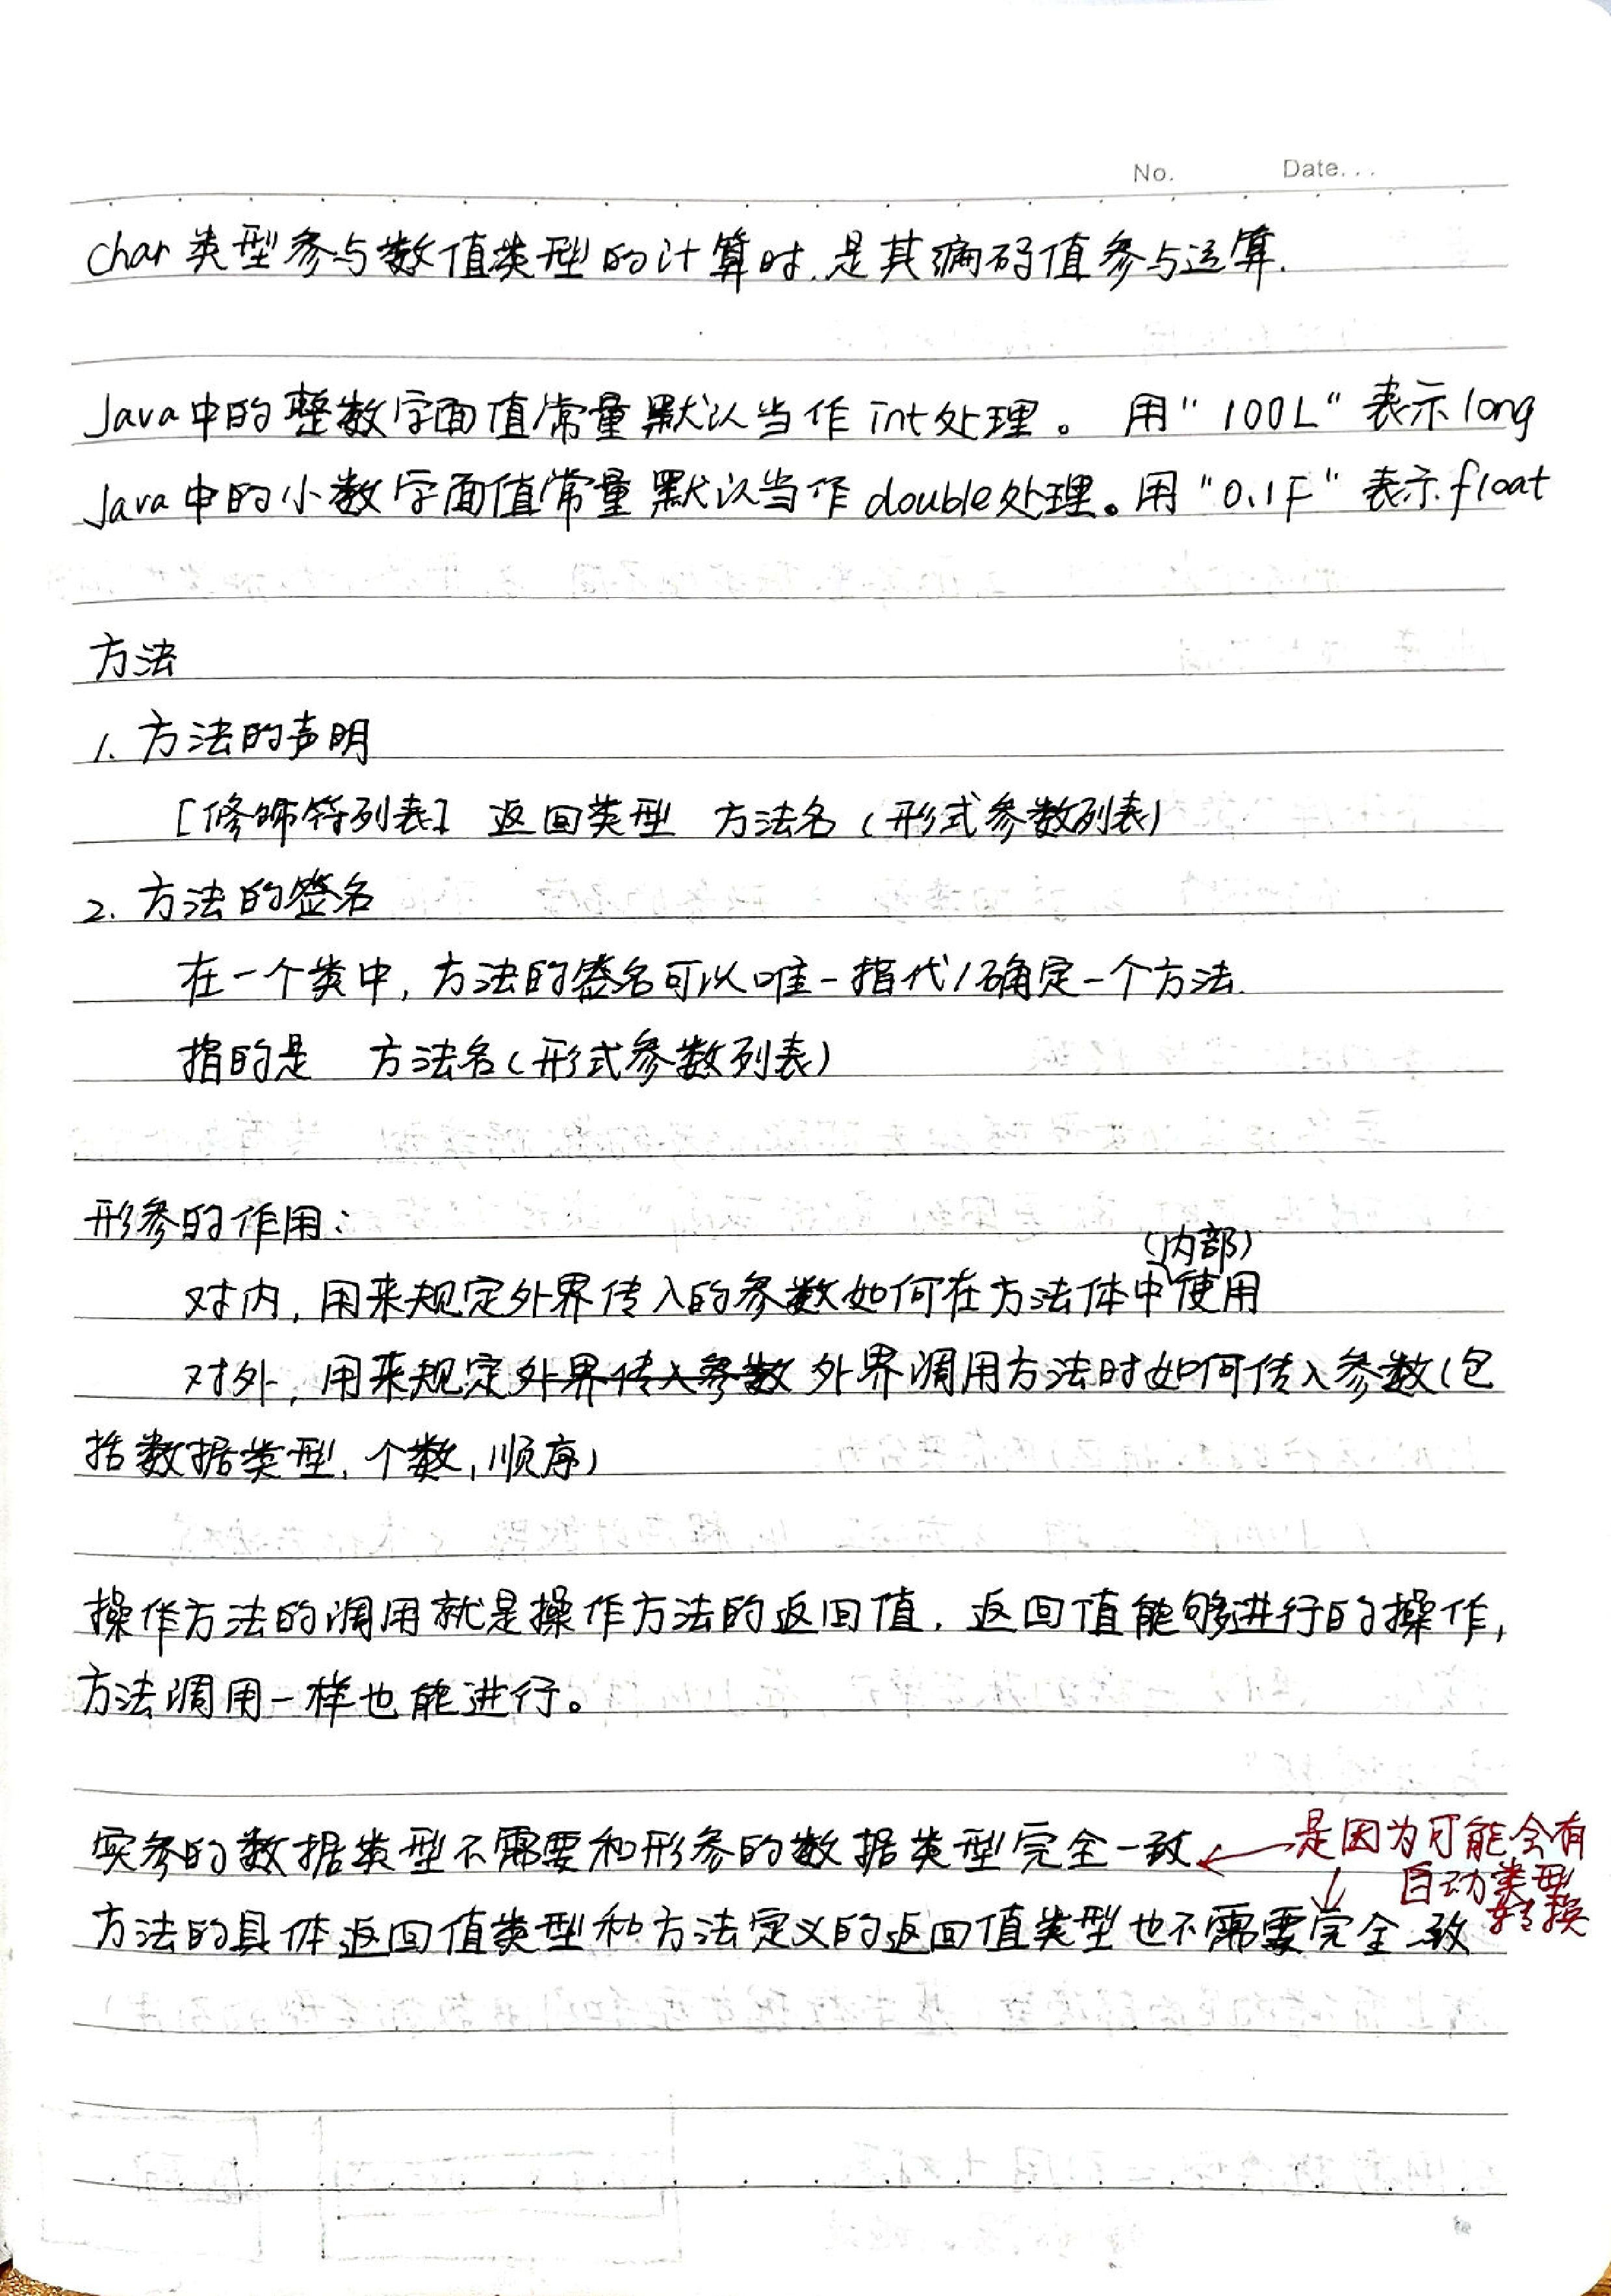 No. Date...
char类型参与数值类型的计算时,是其编码值参与运算.
Java中的整数字面值常量默认当作int处理。 用"100L"表示long
Java中的小数字面值常量默认当作double处理。用"0.1F"表示float
方法
1. 方法的声明
[修饰符列表] 返回类型 方法名(形式参数列表)
2. 方法的签名
在一个类中,方法的签名可以唯一指代/确定一个方法.
指的是 方法名(形式参数列表)
形参的作用:
(内部)
对内,用来规定外界传入的参数如何在方法体中使用
对外,用来规定外界传入参数 外界调用方法时如何传入参数(包
括数据类型,个数,顺序)
操作方法的调用就是操作方法的返回值. 返回值能够进行的操作,
方法调用一样也能进行。
实参的数据类型不需要和形参的数据类型完全一致 ← 是因为可能会有
自动类型
转换
方法的具体返回值类型和方法定义的返回值类型也不需要完全一致